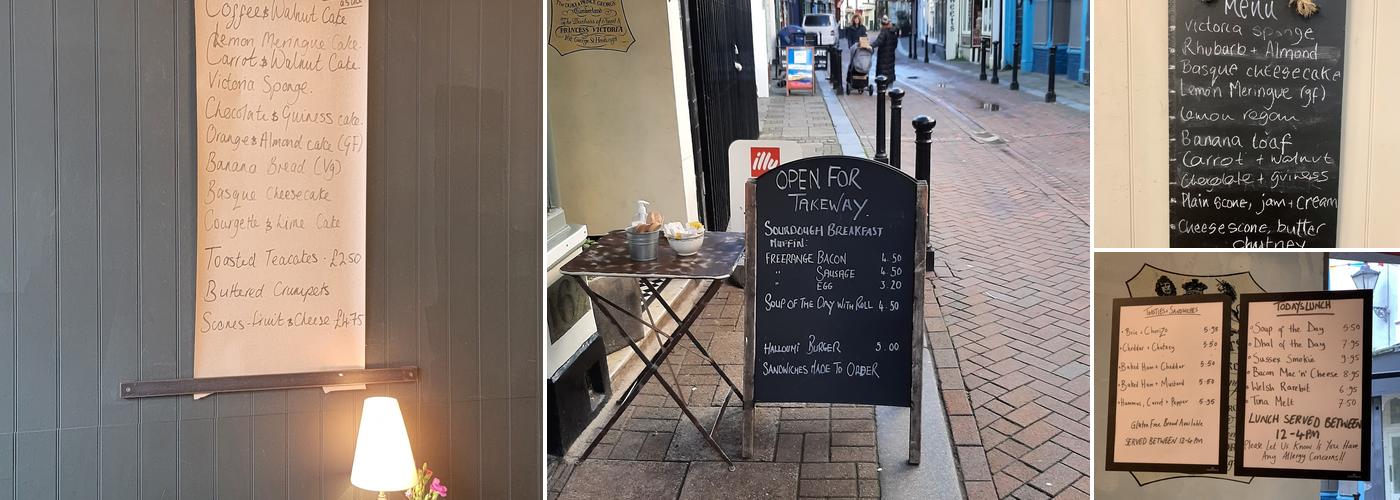 Coffee & Walnut Cake
Lemon Meringue Cake.
Carrot & Walnut Cake
Victoria Sponge.
Chocolate & Guiness cake.
Orange & Almond cake (GF)
Banana Bread (Vg)
Basque Cheesecake
Courgette & Lime Cake
Toasted Teacakes - £2.50
Buttered Crumpets
Scones - fruit & Cheese £4.75
PRINCESS VICTORIA
illy
OPEN FOR
TAKEWAY.
SOURDOUGH BREAKFAST
MUFFIN:
FREERANGE BACON 4.50
" SAUSAGE 4.50
" EGG 3.20
SOUP OF THE DAY WITH ROLL 4.50
HALLOUMI BURGER 5.00
SANDWICHES MADE TO ORDER
Menu
Victoria sponge
- Rhubarb + Almond
- Basque cheesecake
- Lemon Meringue (gf)
- Lemon vegan
- Banana loaf
- Carrot + walnut
- Chocolate + guiness
- Plain scone, jam + cream
- Cheese scone, butter
chutney
TOASTIES & SANDWICHES
• Brie + Chorizo 5.95
• Cheddar + Chutney 5.50
• Baked Ham + Cheddar 5.50
• Baked Ham + Mustard 5.50
• Hummus, Carrot + Pepper 5.95
Gluten Free Bread Available
SERVED BETWEEN 12-4PM
TODAYS LUNCH
• Soup of the Day 5.50
• Dhal of the Day 7.95
• Sussex Smokie 9.95
• Bacon Mac 'n' Cheese 8.95
• Welsh Rarebit 6.95
• Tuna Melt 7.50
LUNCH SERVED BETWEEN
12-4PM
Please Let Us Know If You Have
Any Allergy Concerns!!